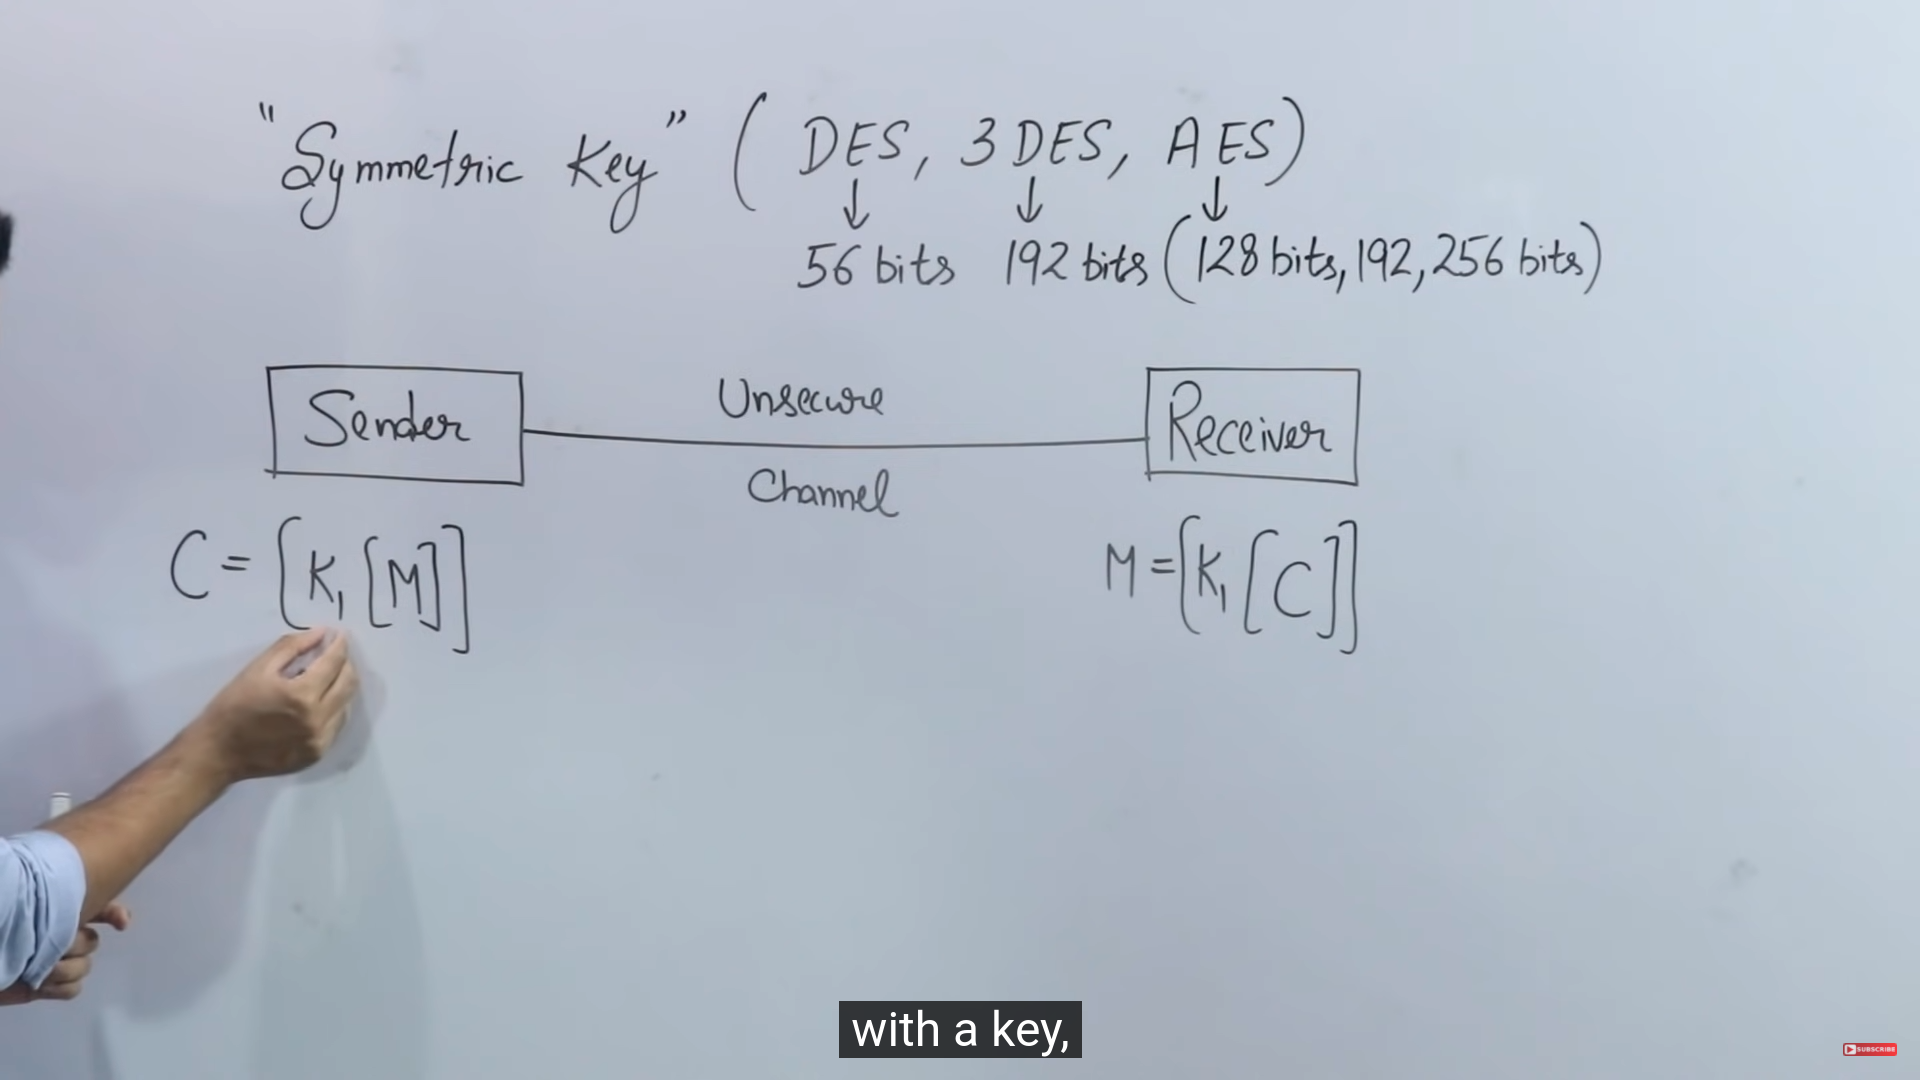 "Symmetric Key" ( DES, 3DES, AES)
↓ ↓ ↓
56 bits 192 bits (128 bits, 192, 256 bits)
Sender
Unsecure
Channel
Receiver
C = [K₁ [M]]
M = [K₁ [C]]
with a key,
SUBSCRIBE